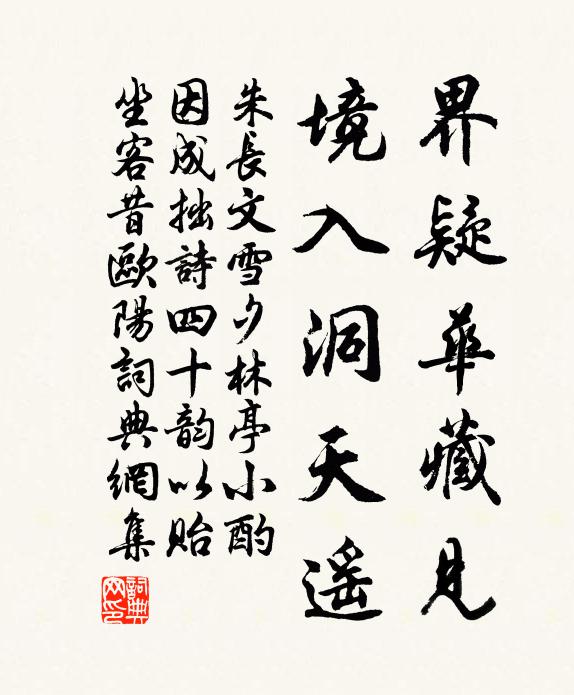 界疑華藏見
境入洞天遥
朱長文雪夕林亭小酌
因成拙詩四十韵以貽
坐客昔歐陽詞典網集
詞典
网印